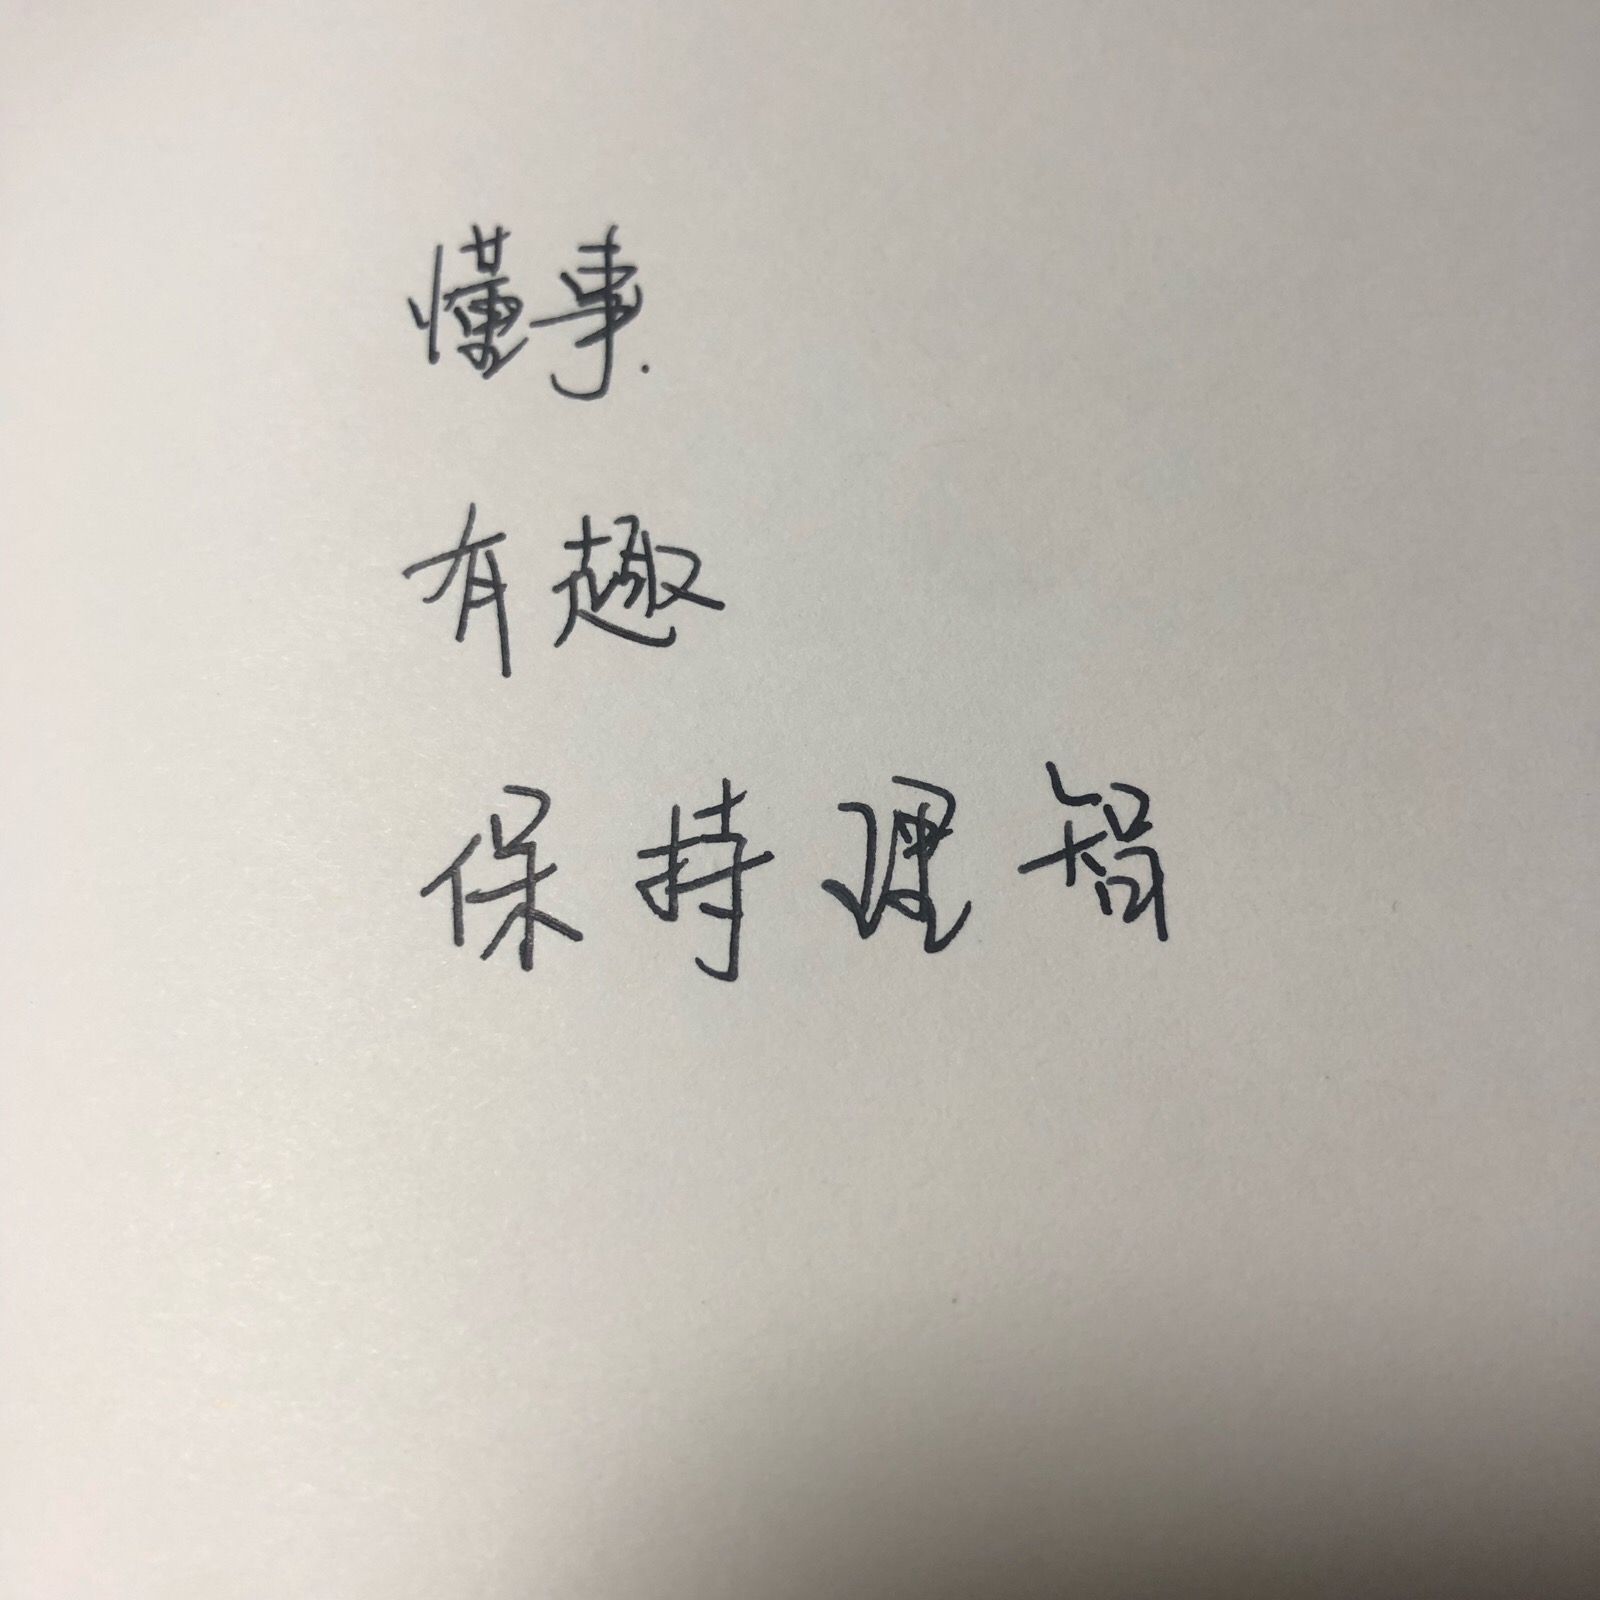 懂事.
有趣
保持理智